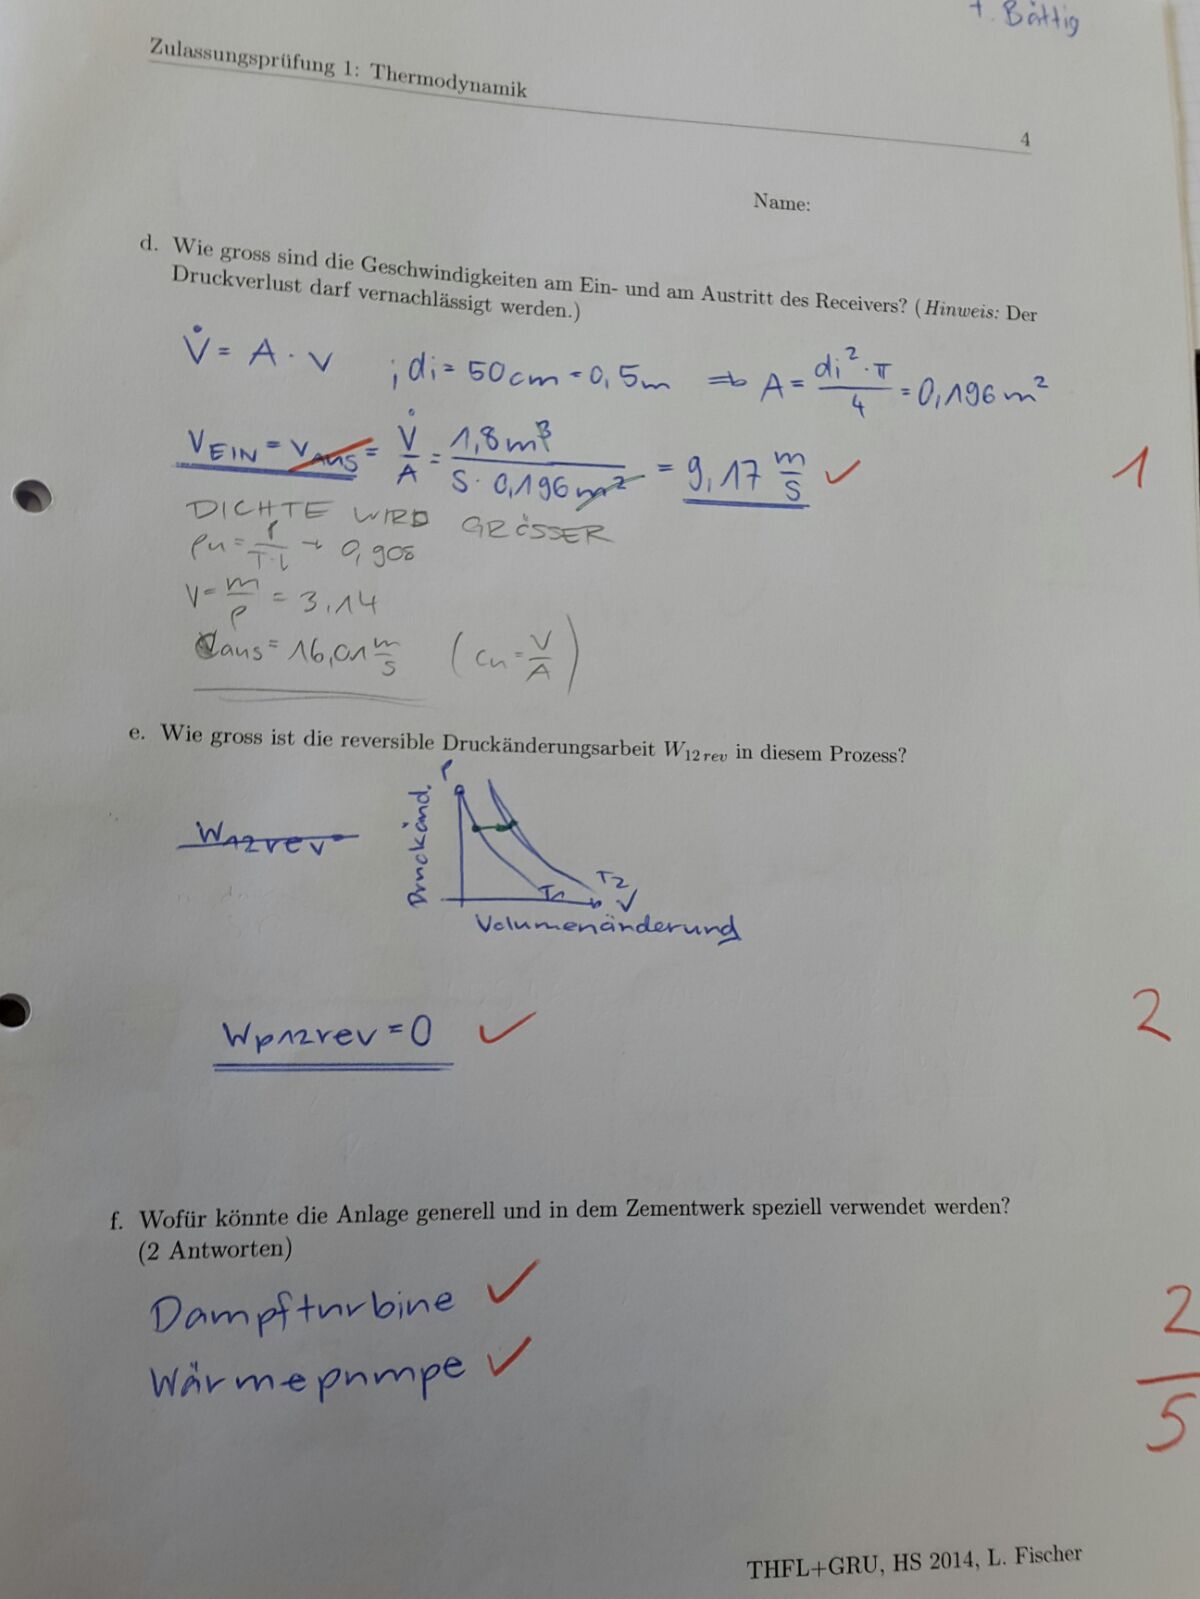 +. Bättig
Zulassungsprüfung 1: Thermodynamik
4
Name:
d. Wie gross sind die Geschwindigkeiten am Ein- und am Austritt des Receivers? (Hinweis: Der
Druckverlust darf vernachlässigt werden.)
V̇ = A · v ; di = 50cm = 0,5m ⇒ A = di² · π / 4 = 0,196 m²
VEIN = VAUS = V̇ / A = 1,8m³ / S · 0,196m² = 9,17 m/s ✓
1
DICHTE WIRD GRÖSSER
→ 0,908
V = m/ρ = 3,14
Vaus = 16,01 m/s (cn = V/A)
e. Wie gross ist die reversible Druckänderungsarbeit W12 rev in diesem Prozess?
W12rev
P
Druckänd.
T1
T2
V
Volumenänderung
Wp12rev = 0 ✓
2
f. Wofür könnte die Anlage generell und in dem Zementwerk speziell verwendet werden?
(2 Antworten)
Dampfturbine ✓
Wärmepumpe ✓
2
5
THFL+GRU, HS 2014, L. Fischer